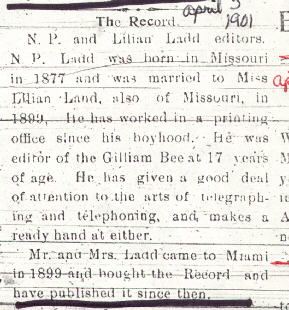 april 5
1901
The Record.
N. P. and Lilian Ladd editors.
N. P. Ladd was born in Missouri
in 1877 and was married to Miss
Lilian Land, also of Missouri, in
1899. He has worked in a printing
office since his boyhood. He was
editor of the Gilliam Bee at 17 years
of age. He has given a good deal
of attention to the arts of telegraph-
ing and telephoning, and makes a
ready hand at either.
Mr. and Mrs. Ladd came to Miami
in 1899 and bought the Record and
have published it since then.